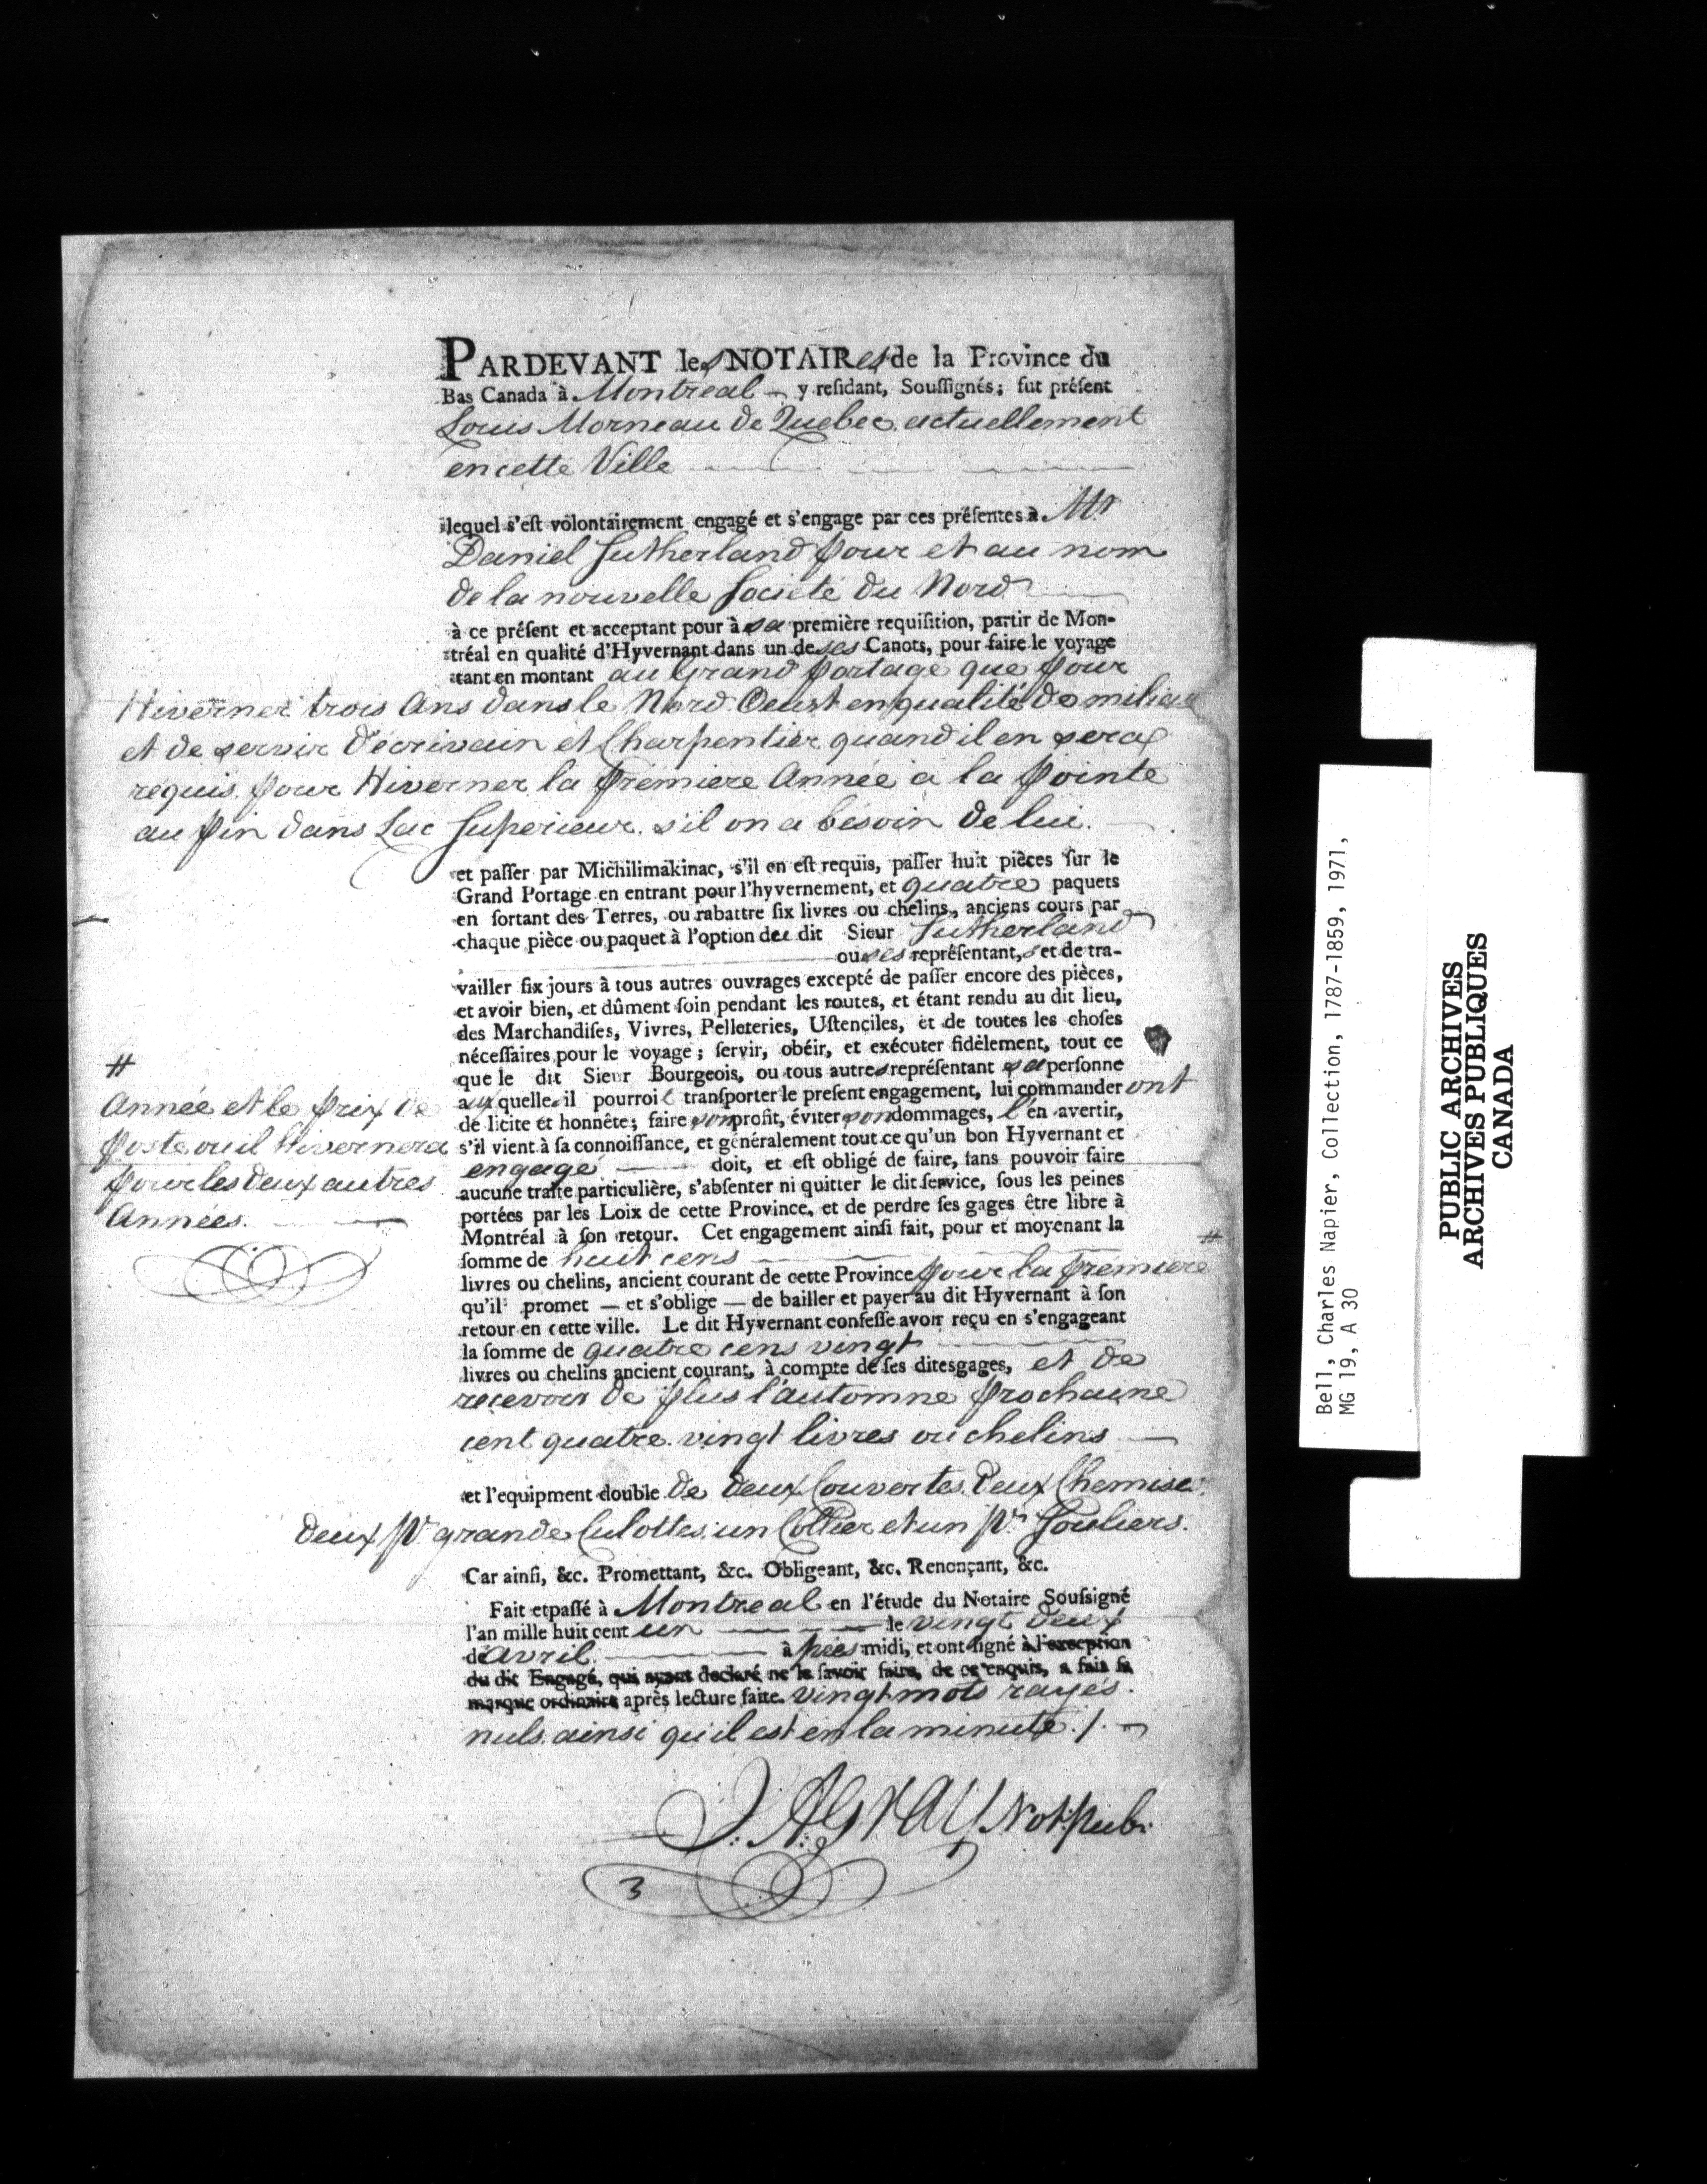 PARDEVANT les NOTAIRes de la Province du
Bas Canada à Montreal y reſidant, Souſſignés; fut préſent
Louis Morneau de Quebec actuellement
en cette Ville
lequel s'eſt volontairement engagé et s'engage par ces préſentes à Mr
Daniel Sutherland pour et au nom
de la nouvelle Societé du Nord
à ce préſent et acceptant pour à sa première requiſition, partir de Mon-
tréal en qualité d'Hyvernant dans un de ses Canots, pour faire le voyage
tant en montant au Grand Portage que pour
Hiverner trois Ans dans le Nord Oeust en qualité de milieu
et de servir d'écrivain et Charpentier quand il en sera
requis pour Hiverner la premiere Année à la pointe
au pin dans Lac Superieur s'il on a bésoin de lui.
et paſſer par Michilimakinac, s'il en eſt requis, paſſer huit pièces ſur le
Grand Portage en entrant pour l'hyvernement, et quatre paquets
en ſortant des Terres, ou rabattre ſix livres ou chelins, anciens cours par
chaque pièce ou paquet à l'option du dit Sieur Sutherland
ou ses repréſentant,s et de tra-
vailler ſix jours à tous autres ouvrages excepté de paſſer encore des pièces,
et avoir bien, et dûment ſoin pendant les routes, et étant rendu au dit lieu,
des Marchandiſes, Vivres, Pelleteries, Uſtenciles, et de toutes les choſes
néceſſaires pour le voyage; ſervir, obéir, et exécuter fidèlement, tout ce
que le dit Sieur Bourgeois, ou tous autres repréſentant sa perſonne
aux quelles il pourroit tranſporter le preſent engagement, lui commander ont
de licite et honnête; faire son profit, éviter son dommages, l'en avertir,
s'il vient à ſa connoiſſance, et généralement tout ce qu'un bon Hyvernant et
engagé doit, et eſt obligé de faire, ſans pouvoir faire
aucune traite particulière, s'abſenter ni quitter le dit ſervice, ſous les peines
portées par les Loix de cette Province, et de perdre ſes gages être libre à
Montréal à ſon retour. Cet engagement ainſi fait, pour et moyenant la
ſomme de huit cens #
livres ou chelins, ancient courant de cette Province pour la premiere
qu'il promet — et s'oblige — de bailler et payer au dit Hyvernant à ſon
retour en cette ville. Le dit Hyvernant confeſſe avoir reçu en s'engageant
la ſomme de quatre cens vingt
livres ou chelins ancient courant, à compte de ſes ditesgages, et de
recevoir de plus l'automne prochaine
cent quatre vingt livres ou chelins
et l'equipment double de deux Couvertes, deux Chemises,
deux pr grande Culottes, un Collier et un pr. Souliers.
Car ainſi, &c. Promettant, &c. Obligeant, &c. Renonçant, &c.
Fait et paſſé à Montreal en l'étude du Notaire Souſſigné
l'an mille huit cent un le vingt deux
de avril à près midi, et ont ſigné à l'exception
du dit Engagé, qui ayant declaré ne le ſavoir faire, de ce enquis, a fait ſa
marque ordinaire après lecture faite. vingt mots rayés
nuls ainsi qu'il est en la minute ./.
J: A: Gray Not: Pub:
3
#
Année et le prix de
poste ou il Hivernera
pour les deux autres
Années.
Bell, Charles Napier, Collection, 1787-1859, 1971,
MG 19, A 30
PUBLIC ARCHIVES
ARCHIVES PUBLIQUES
CANADA